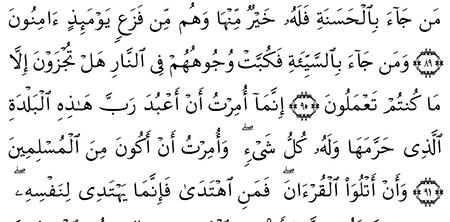 مَن جَآءَ بِٱلْحَسَنَةِ فَلَهُۥ خَيْرٌ مِّنْهَا وَهُم مِّن فَزَعٍ يَوْمَئِذٍ ءَامِنُونَ
﴿٨٩﴾ وَمَن جَآءَ بِٱلسَّيِّئَةِ فَكُبَّتْ وُجُوهُهُمْ فِى ٱلنَّارِ هَلْ تُجْزَوْنَ إِلَّا
مَا كُنتُمْ تَعْمَلُونَ ﴿٩٠﴾ إِنَّمَآ أُمِرْتُ أَنْ أَعْبُدَ رَبَّ هَـٰذِهِ ٱلْبَلْدَةِ
ٱلَّذِى حَرَّمَهَا وَلَهُۥ كُلُّ شَىْءٍ ۖ وَأُمِرْتُ أَنْ أَكُونَ مِنَ ٱلْمُسْلِمِينَ
﴿٩١﴾ وَأَنْ أَتْلُوَا۟ ٱلْقُرْءَانَ ۖ فَمَنِ ٱهْتَدَىٰ فَإِنَّمَا يَهْتَدِى لِنَفْسِهِۦ ۖ